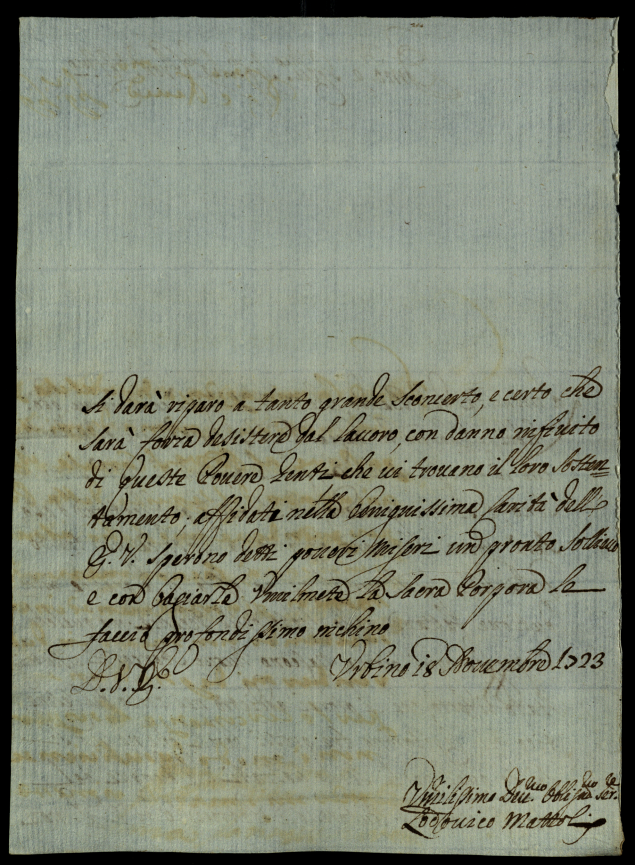 si darà riparo a tanto grande sconcerto, e certo che
sarà forza desistere dal lavoro, con danno infinito
di queste povere genti che vi trovano il loro sosten=
tamento; affidati nella benignissima carità dell
E. V. sperono detti poveri miseri un pronto sollievo
e con baciarle umilmente la sacra porpora le
faccio profondissimo inchino
D. V. E. Urbino 18 Novembre 1723
Umilissimo Dev.mo Oblig.mo Ser.re
Lodovico